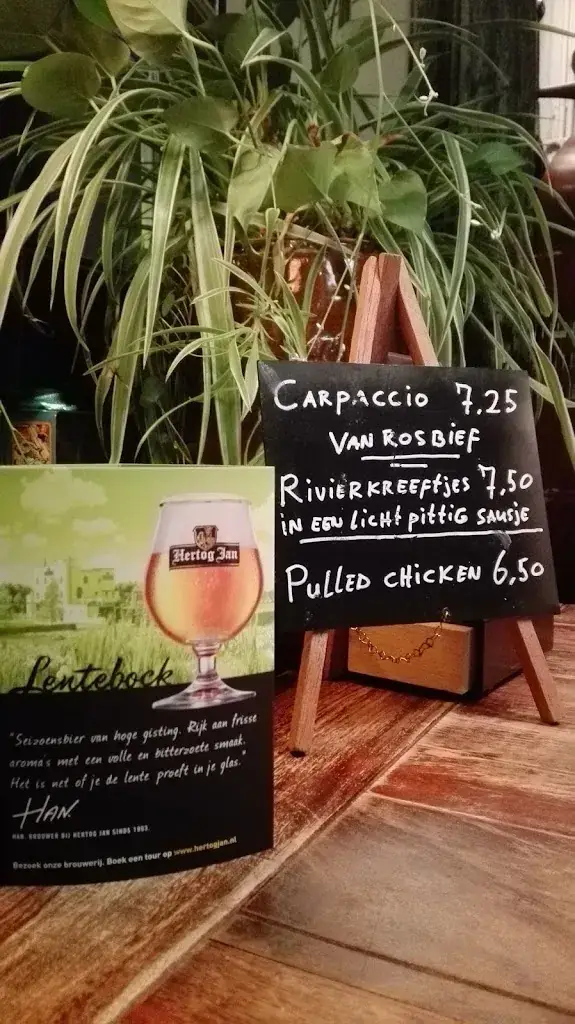 CARPACCIO 7.25
VAN ROSBIEF
RIVIERKREEFTJES 7,50
IN EEN LICHT PITTIG SAUSJE
PULLED CHICKEN 6,50
Hertog Jan
Lentebock
"Seizoensbier van hoge gisting. Rijk aan frisse
aroma's met een volle en bitterzoete smaak.
Het is net of je de lente proeft in je glas."
HAN.
HAN, BROUWER BIJ HERTOG JAN SINDS 1983.
Bezoek onze brouwerij. Boek een tour op www.hertogjan.nl